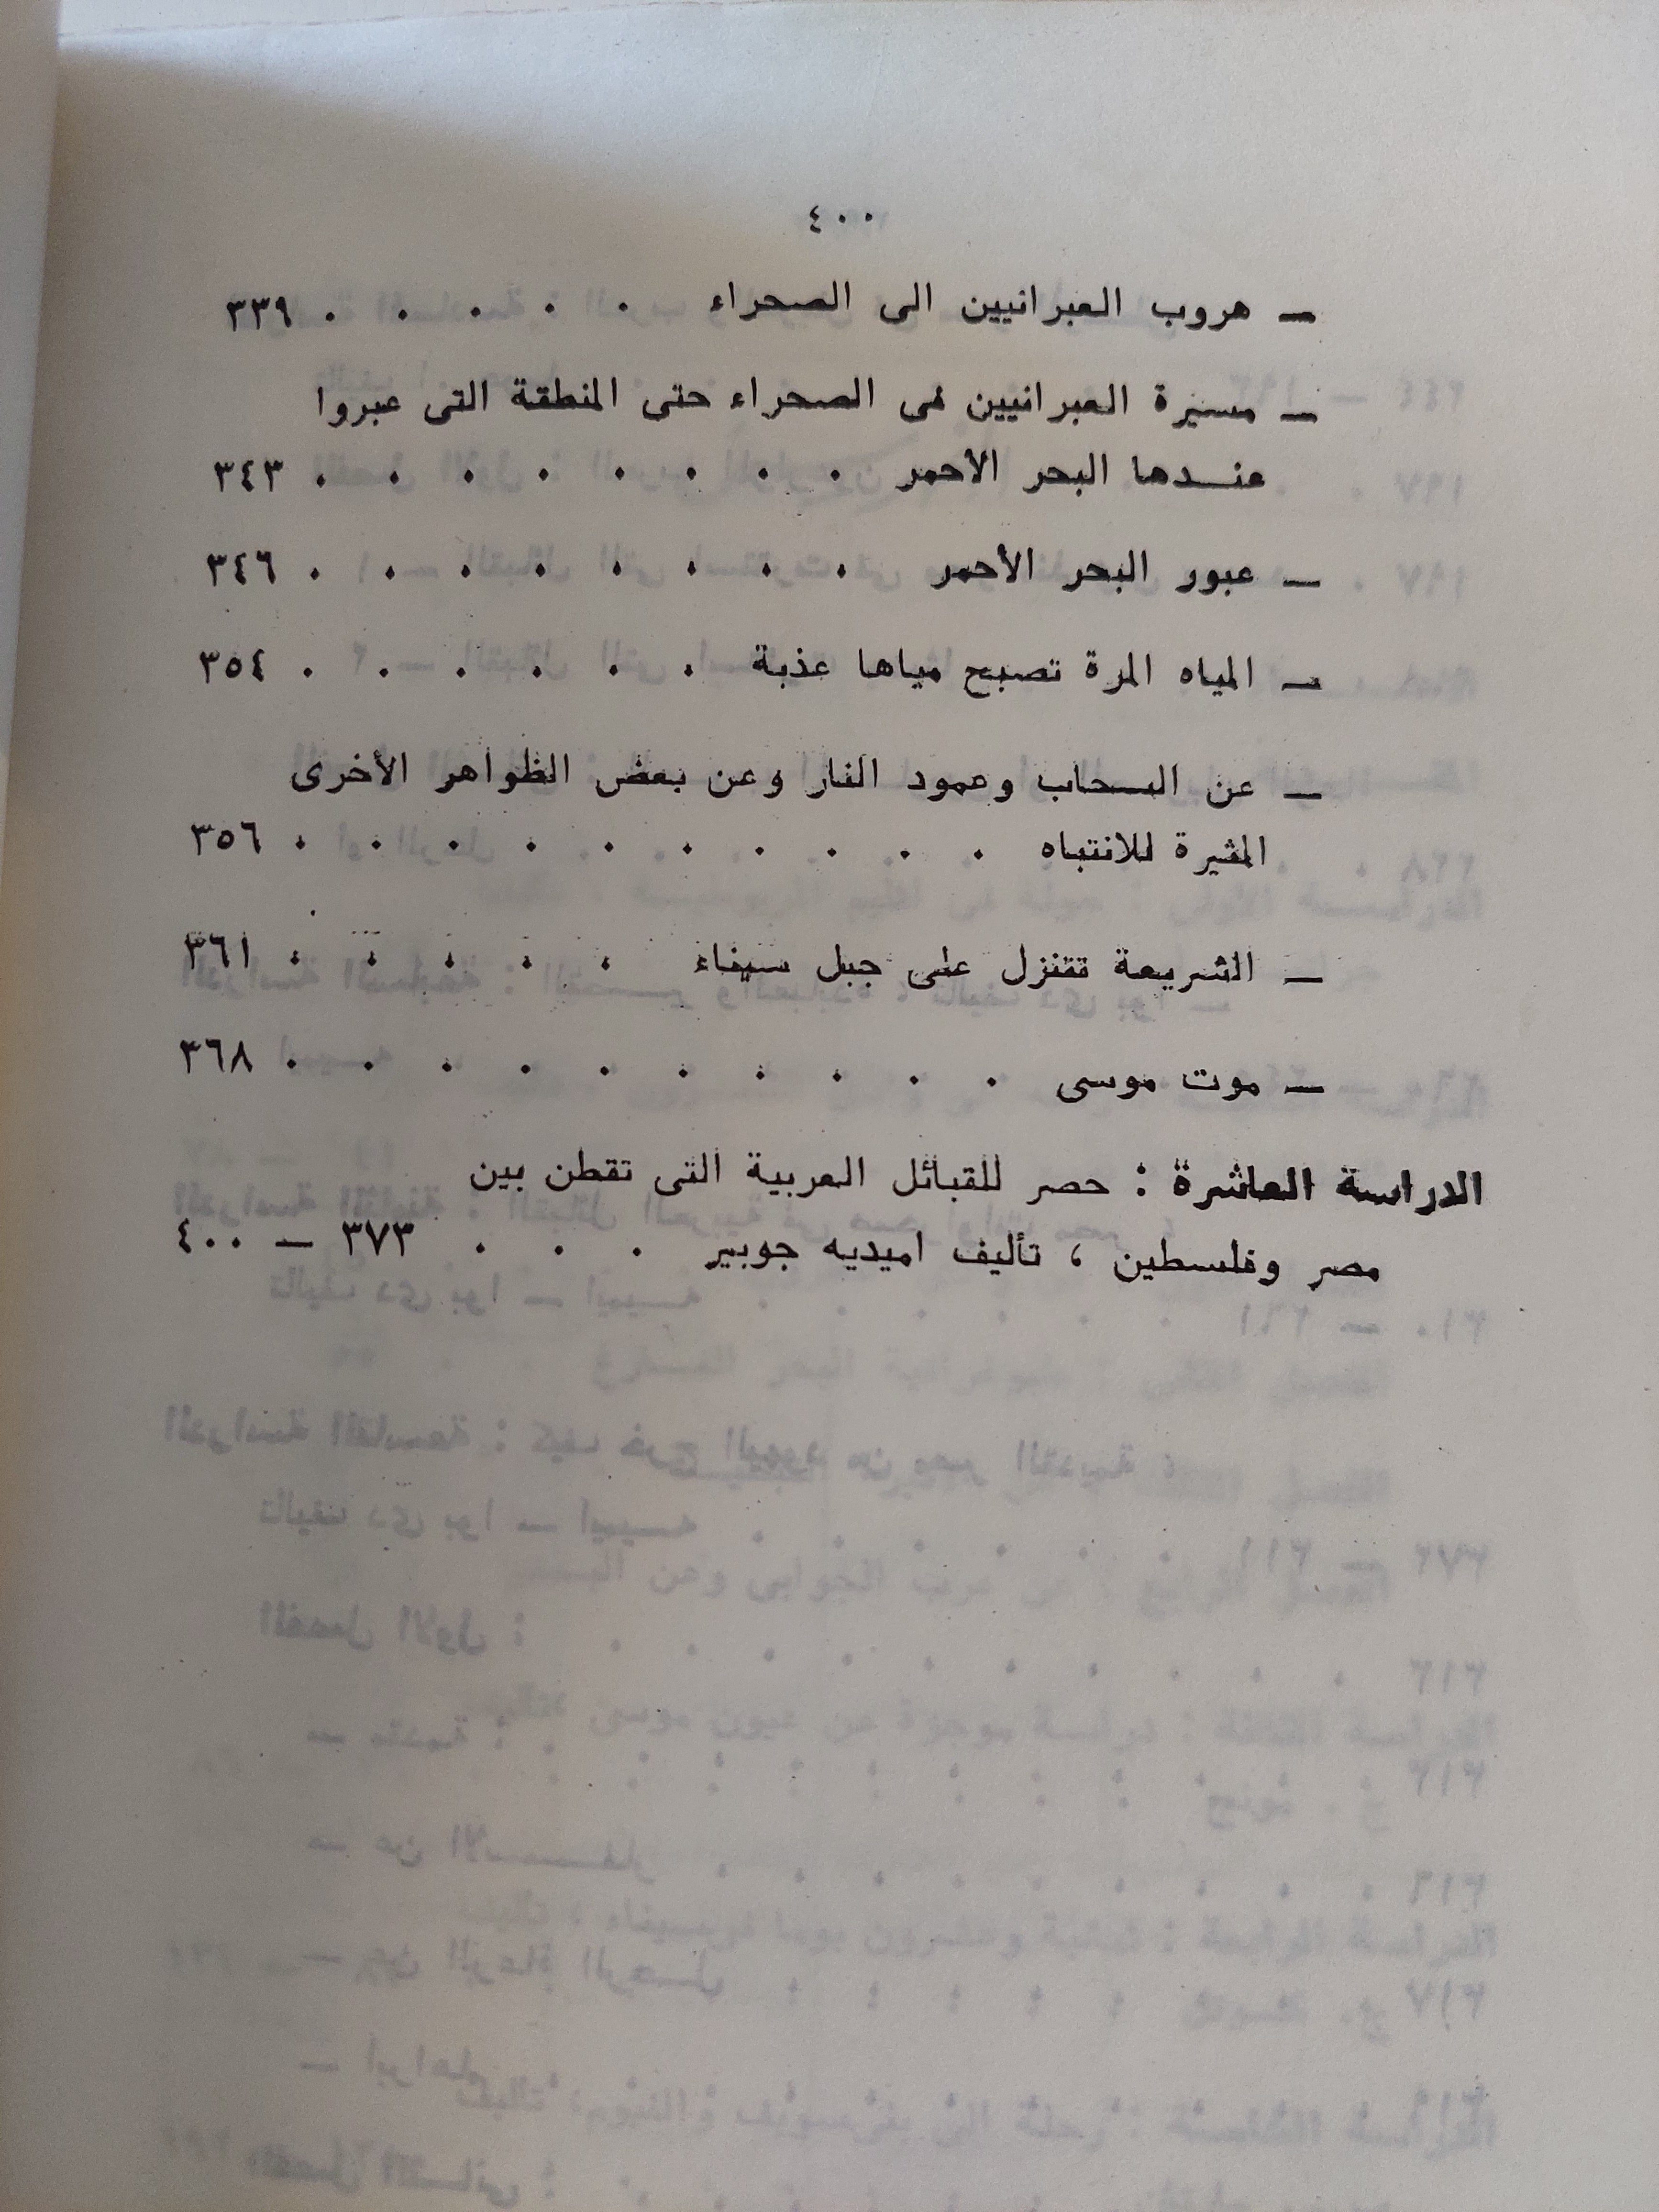 ٤٠٠
— هروب العبرانيين الى الصحراء . . . . . . ٣٣٩
— مسيرة العبرانيين فى الصحراء حتى المنطقة التى عبروا
عنــدها البحر الأحمر . . . . . . . . ٣٤٣
— عبور البحر الأحمر . . . . . . . . ٣٤٦
— المياه المرة تصبح مياها عذبة . . . . . . ٣٥٤
— عن الســحاب وعمود النار وعن بعض الظواهر الأخرى
المثيرة للانتباه . . . . . . . . . . ٣٥٦
— الشريعة تتنزل على جبل سيناء . . . . . ٣٦١
— موت موسى . . . . . . . . . . ٣٦٨
الدراسة العاشرة : حصر للقبائل العربية التى تقطن بين
مصر وفلسطين ، تأليف اميديه جوبير . . . ٣٧٣ — ٤٠٠